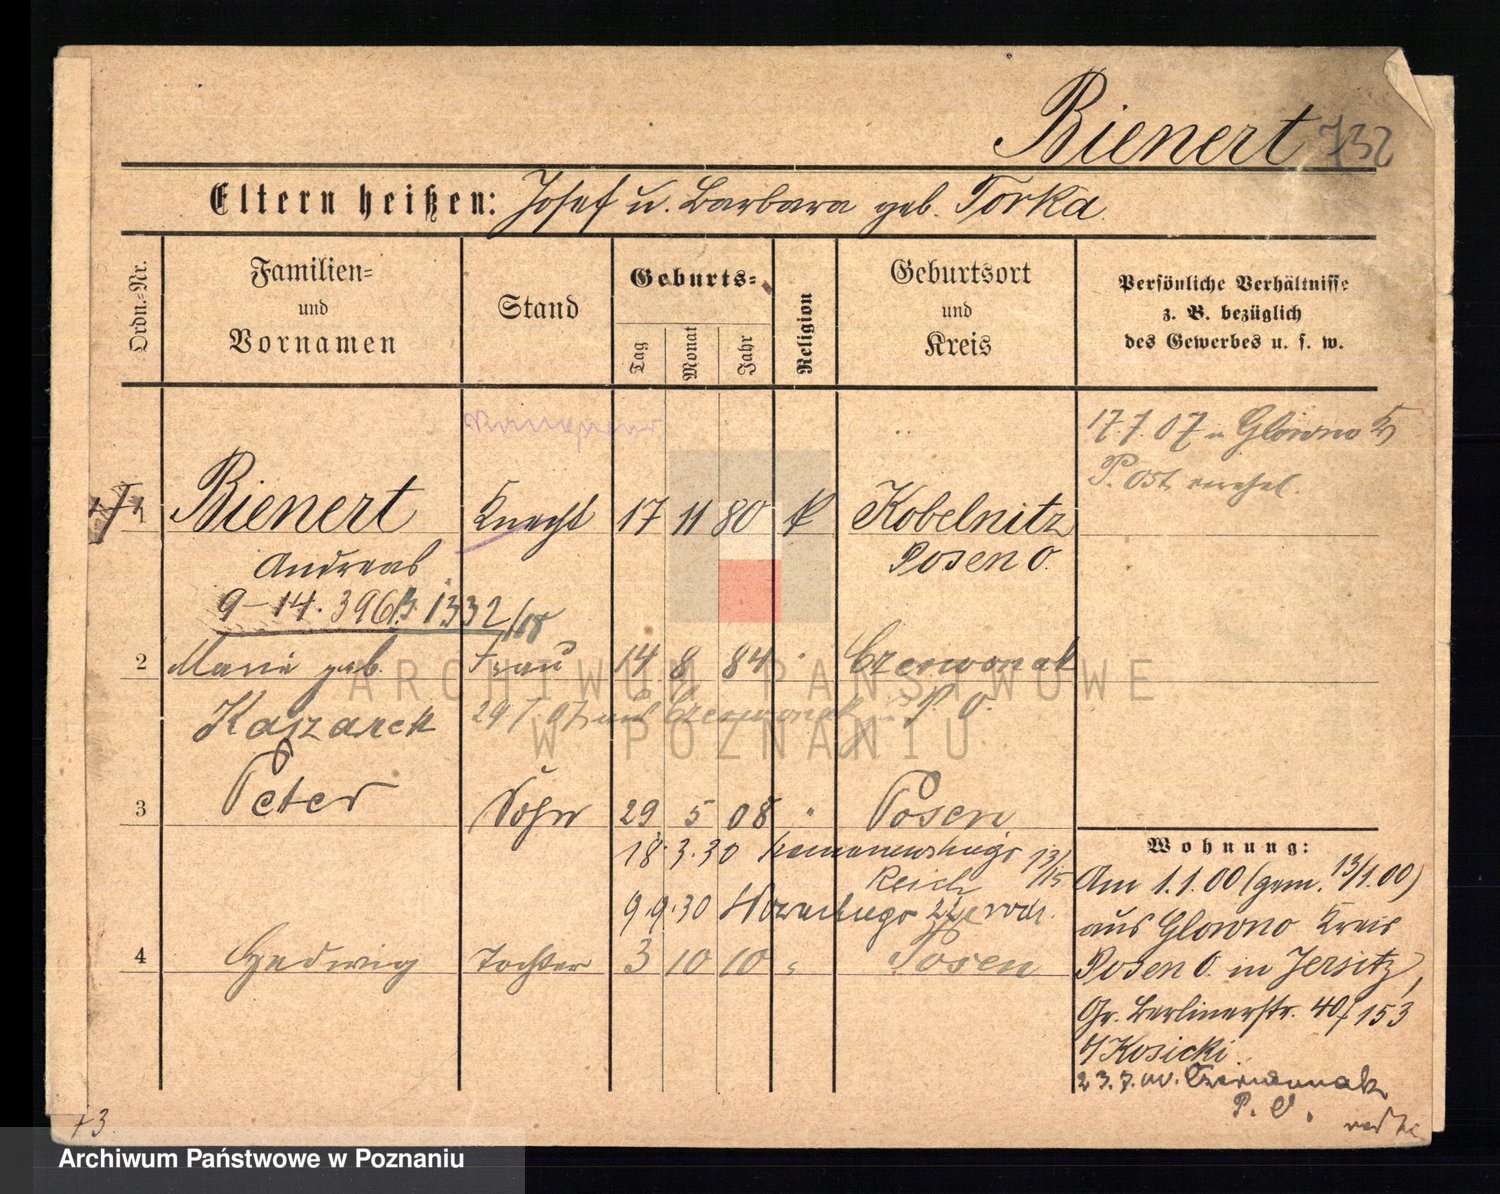 Bienert 732
Eltern heißen: Josef u. Barbara geb. Torka
Ordn.-Nr.
Familien-
und
Vornamen
Stand
Geburts-
Tag
Monat
Jahr
Religion
Geburtsort
und
Kreis
Persönliche Verhältnisse
z. B. bezüglich
des Gewerbes u. s. w.
17.7.07 in Glowno K
P. Ost verehel.
1 Bienert Knecht 17 11 80 k Kobelnitz
Andreas Posen O.
9-14.396 B. 1332/08
2 Marie geb. Frau 14 8 84 " Czerwonak
Kaszarek 29/7 07 Czerwonak P. O.
3 Peter Sohn 29 5 08 " Posen
18.3.30
Reich
9.9.30
4 Hedwig Tochter 3 10 10 " Posen
Wohnung:
Am 1.1.00 (gem. 13/1.00)
aus Glowno Kreis
Posen O. in Jersitz,
Gr. Berlinerstr. 40/153
b/Kosicki
23.7.00. Czerwonak
P. O.
73
ARCHIWUM PAŃSTWOWE
W POZNANIU
Archiwum Państwowe w Poznaniu